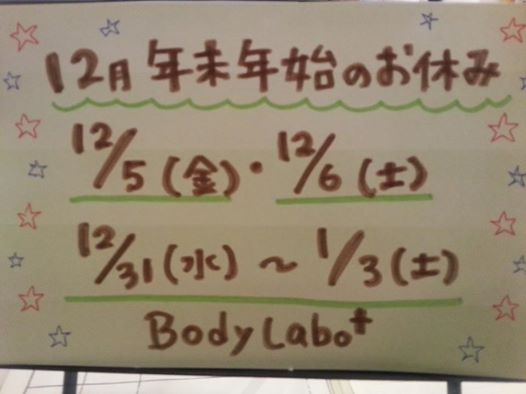 12月 年末年始のお休み
12/5(金)・12/6(土)
12/31(水)〜1/3(土)
Body Labo+